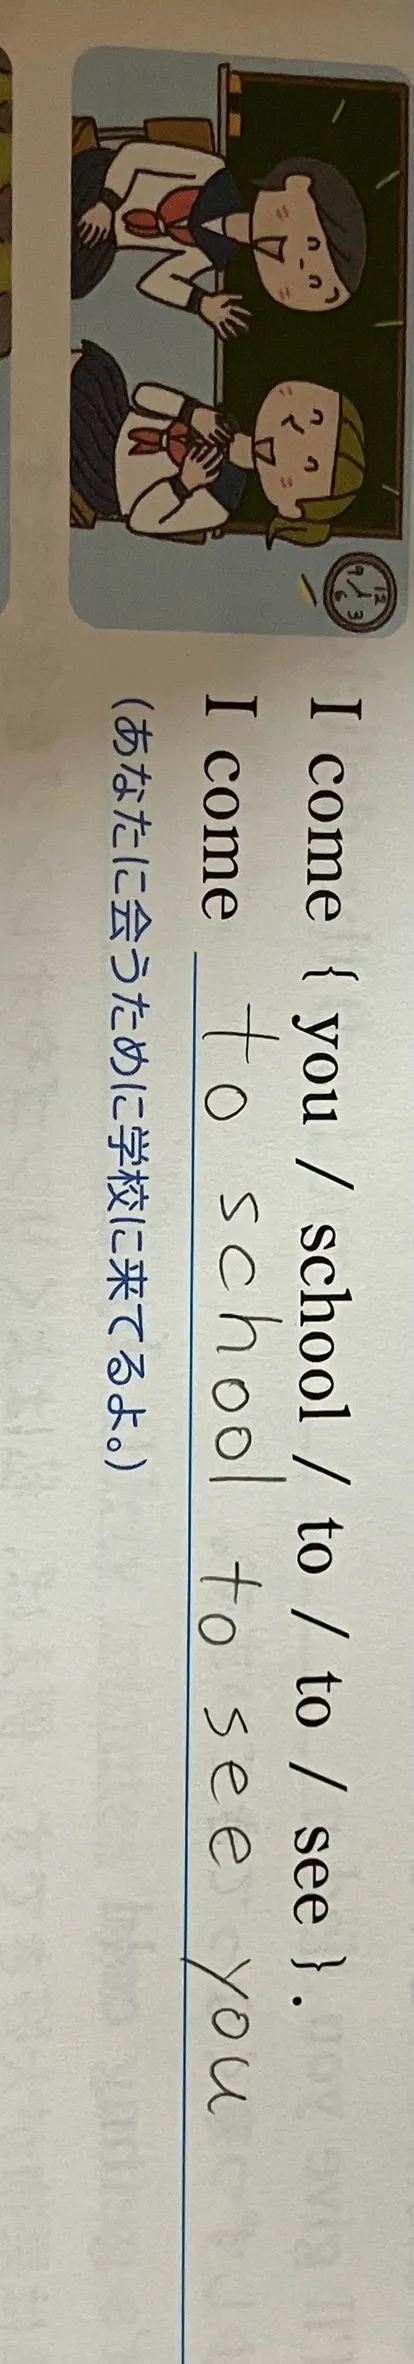 I come { you / school / to / to / see }.
I come to school to see you
(あなたに会うために学校に来てるよ。)
12
9 3
6